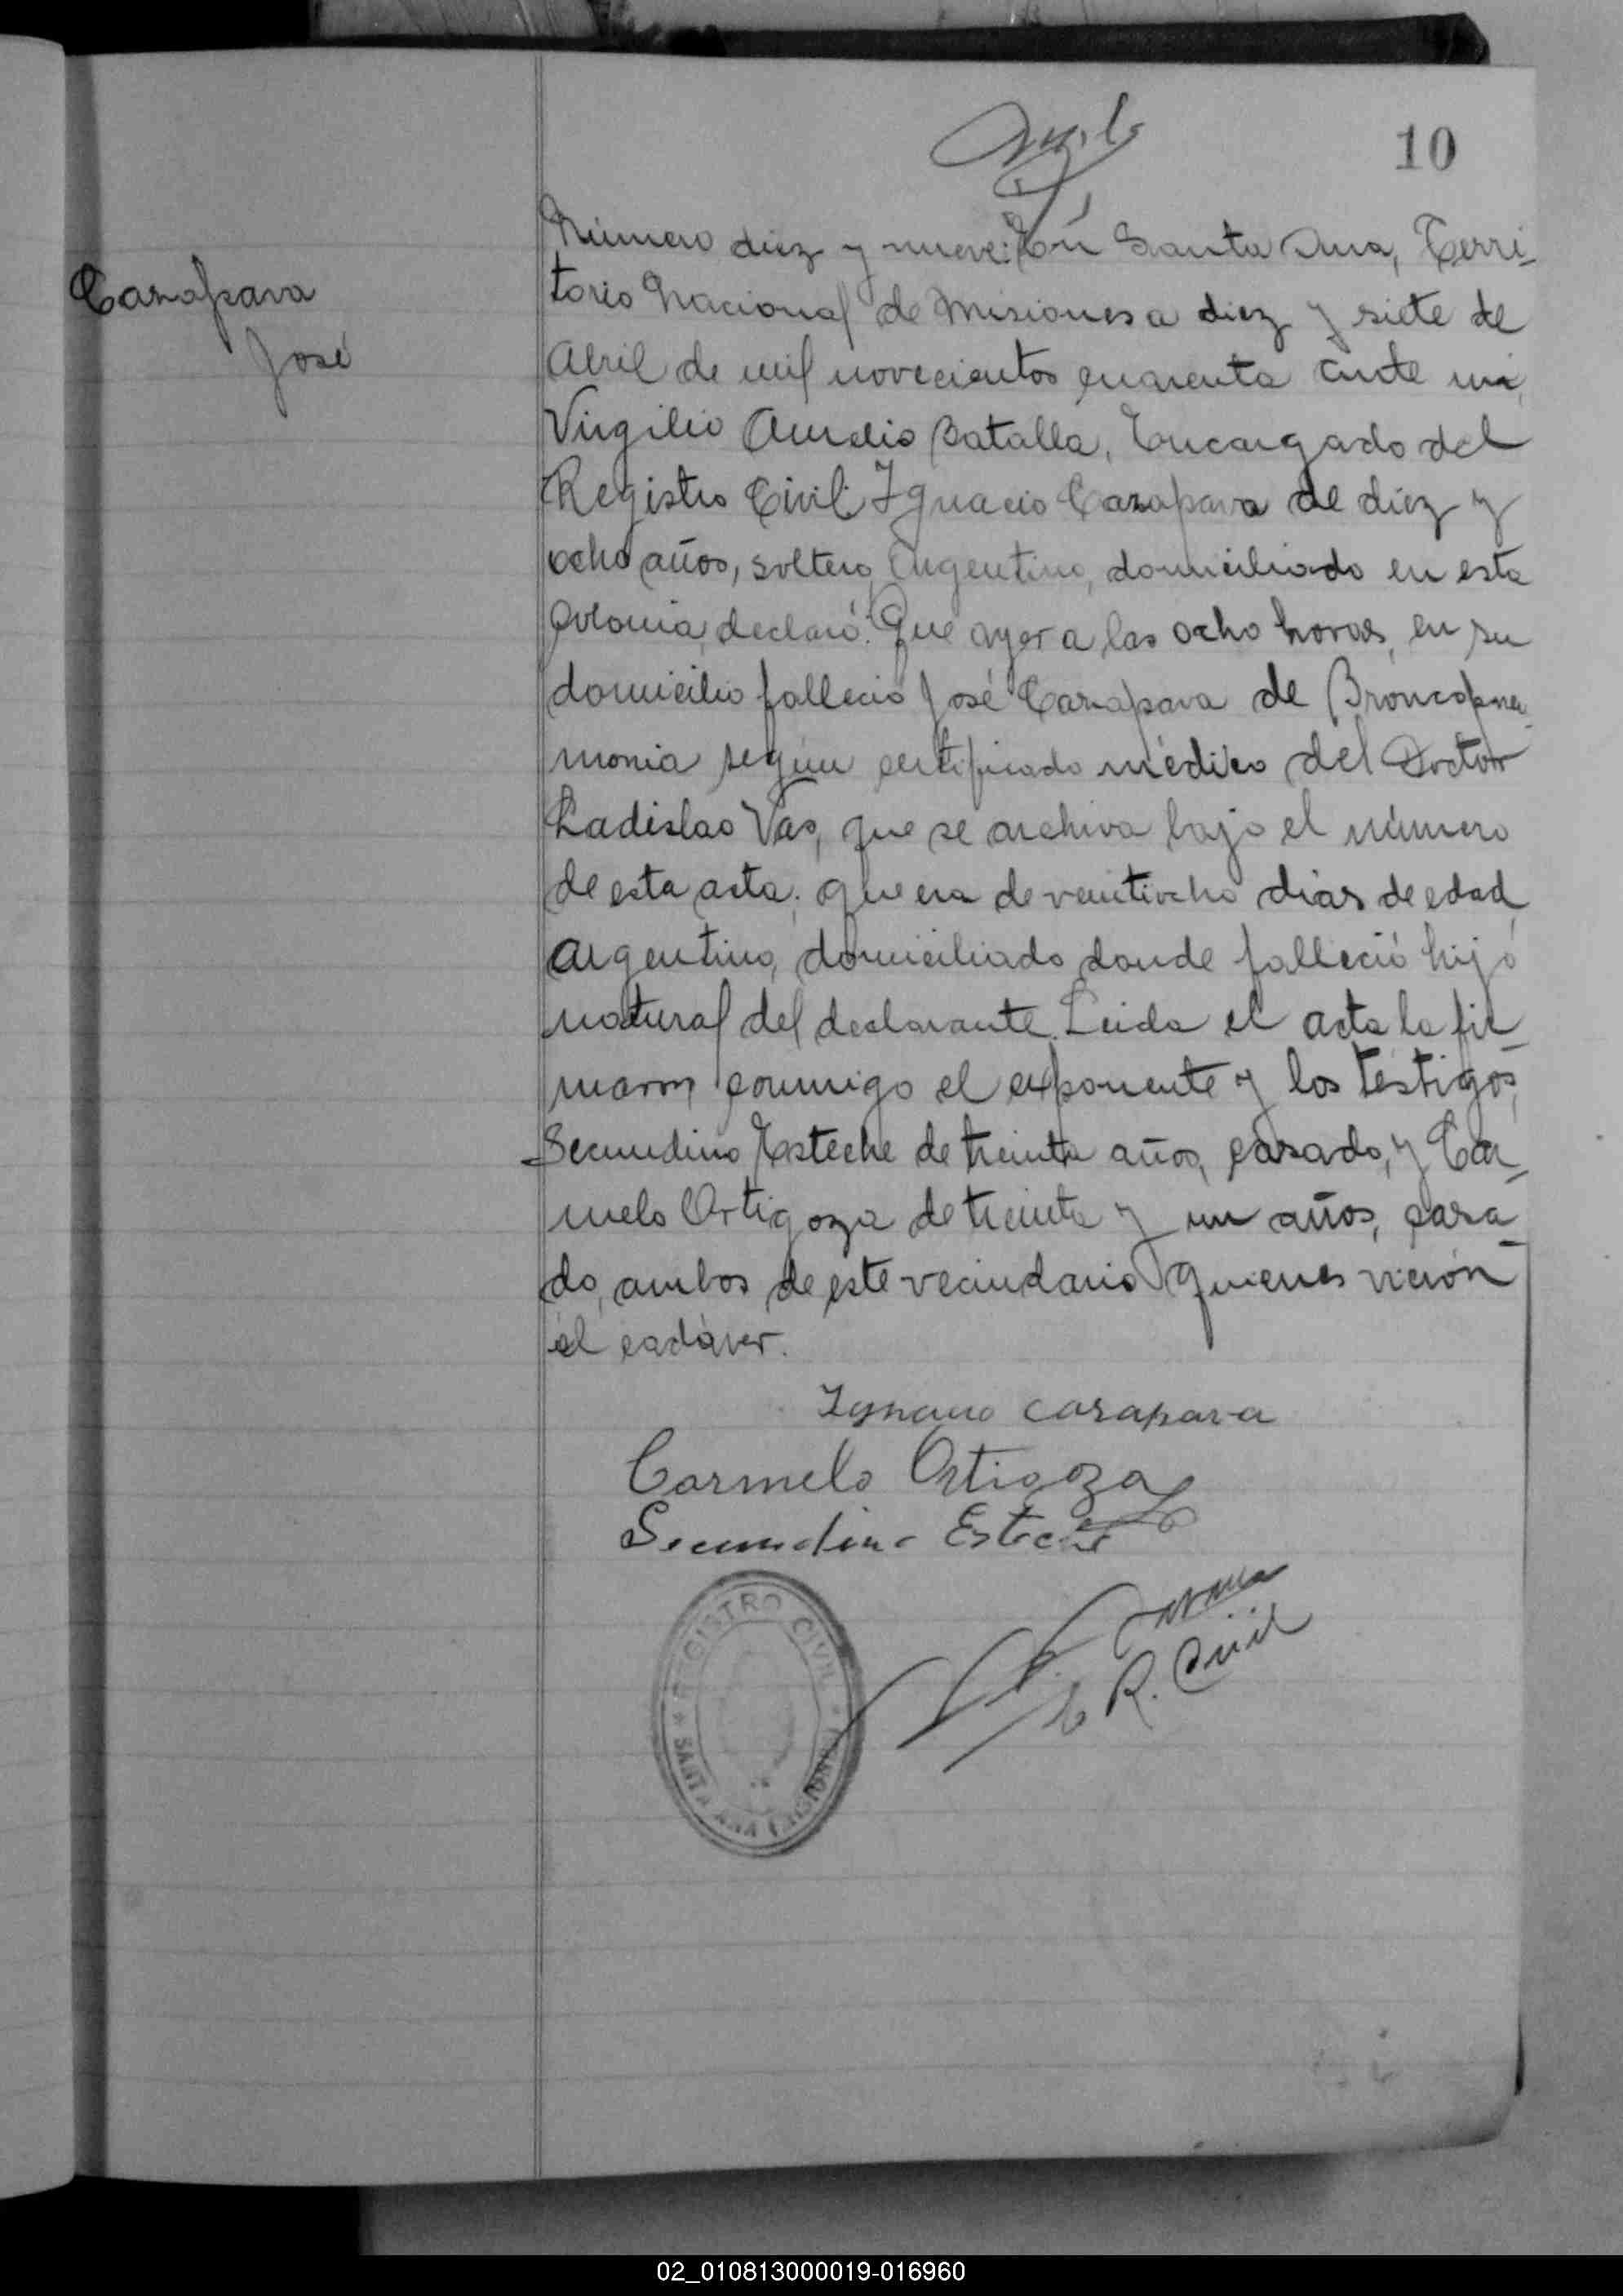 10
Carapava
José
Número diez y nueve: En Santa Ana, Terri-
torio Nacional de Misiones a diez y siete de
Abril de mil novecientos cuarenta ante mi,
Virgilio Aurelio Batalla, Encargado del
Registro Civil: Ignacio Carapava de diez y
ocho años, soltero, Argentino, domiciliado en esta
Colonia, declaró: Que ayer a las ocho horas, en su
domicilio falleció José Carapava de Broncopneu-
monia según certificado médico del Doctor
Ladislao Vas, que se archiva bajo el número
de esta acta; que era de veintiocho dias de edad
argentino, domiciliado donde falleció hijo
natural del declarante. Leida el acta la fir-
maron conmigo el exponente y los testigos,
Secundino Esteche de treinta años, casado, y Car-
melo Ortigoza de treinta y un años, casa-
do, ambos de este vecindario quienes vieron
el cadáver.
Ignacio Carapava
Carmelo Ortigoza
Secundino Esteche
E R. Civil
REGISTRO CIVIL
SANTA ANA (MISIONES)
02_010813000019-016960